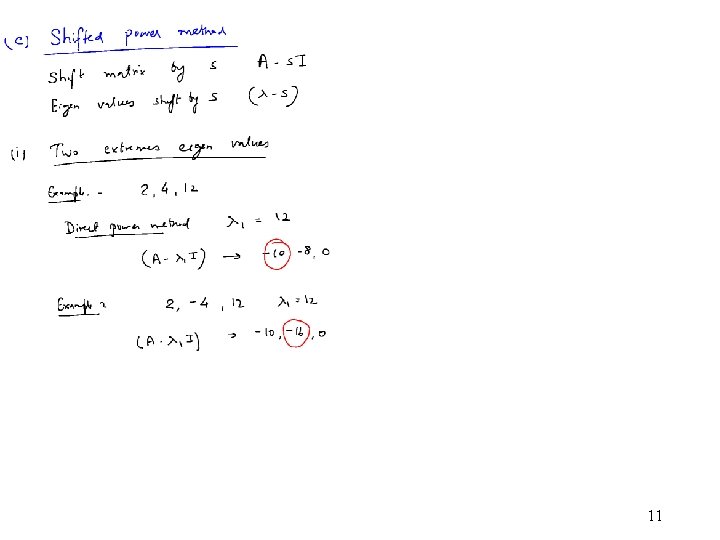 (c) Shifted power method
Shift matrix by s A - sI
Eigen values shift by s (λ - s)
(i) Two extremes eigen values
Example - 2, 4, 12
Direct power method λ₁ = 12
(A - λ₁I) → -10, -8, 0
Example 2 2, -4, 12 λ₁ = 12
(A - λ₁I) → -10, -16, 0
11